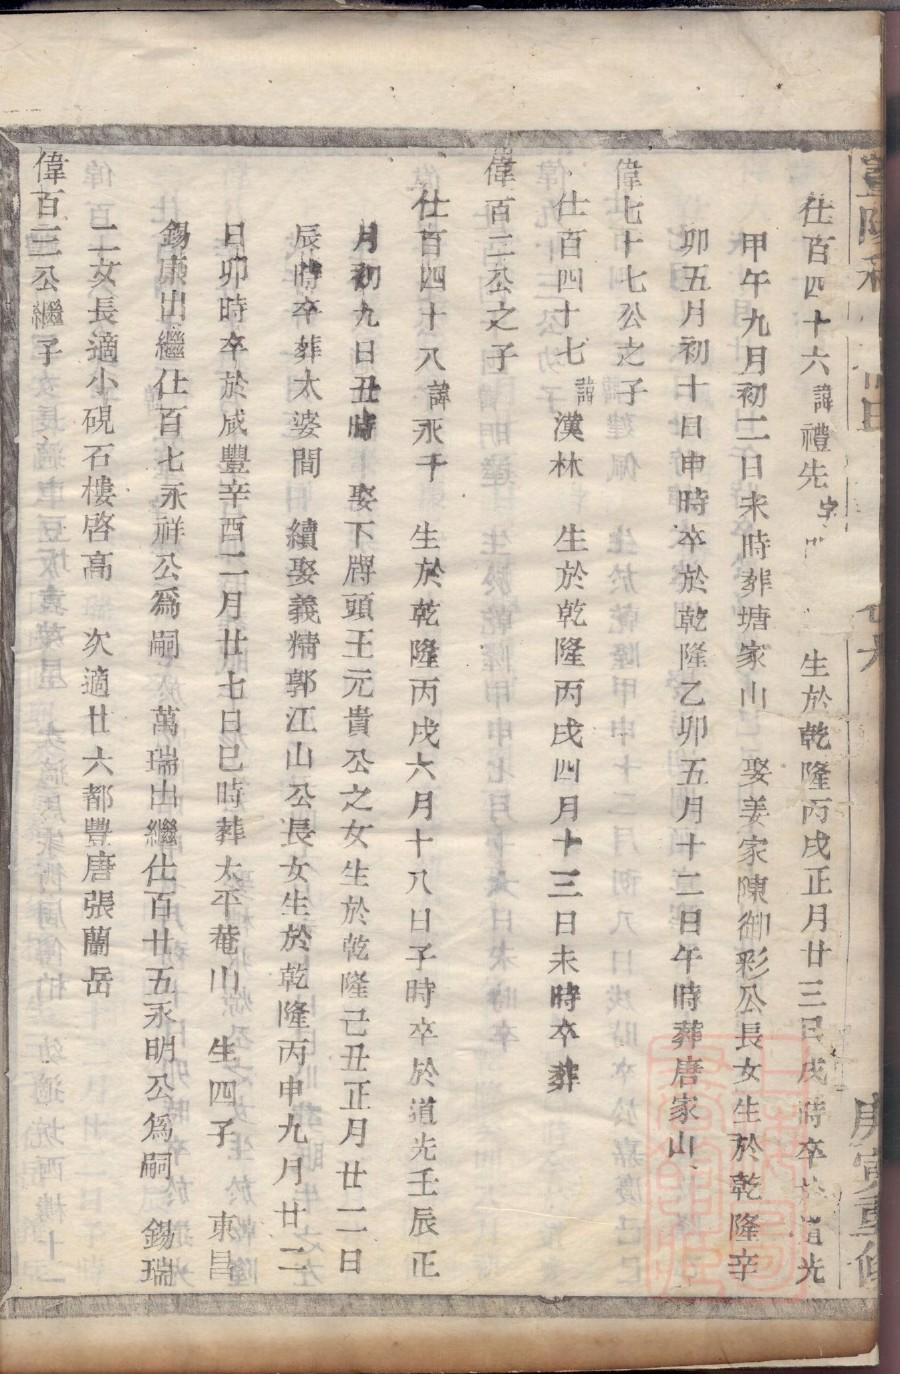 仕百四十六諱禮先字 生於乾隆丙戌正月廿三日戌時卒於道光
甲午九月初二日未時葬塘家山 娶姜家陳御彩公長女生於乾隆辛
卯五月初十日申時卒於乾隆乙卯五月十二日午時葬唐家山
偉七十七公之子
仕百四十七諱漢林 生於乾隆丙戌四月十三日未時卒葬
偉百二公之子
仕百四十八諱永千 生於乾隆丙戌六月十八日子時卒於道光壬辰正
月初九日丑時 娶下牌頭王元貴公之女生於乾隆己丑正月廿二日
辰時卒葬太婆間 續娶義精郭江山公長女生於乾隆丙申九月廿二
日卯時卒於咸豐辛酉二月廿七日巳時葬太平菴山 生四子 東昌
錫康出繼仕百七永祥公爲嗣 萬瑞出繼仕百廿五永明公爲嗣 錫瑞
二女長適小硯石樓啓高 次適廿六都豐唐張蘭岳
偉百三公繼子
庚寅重修